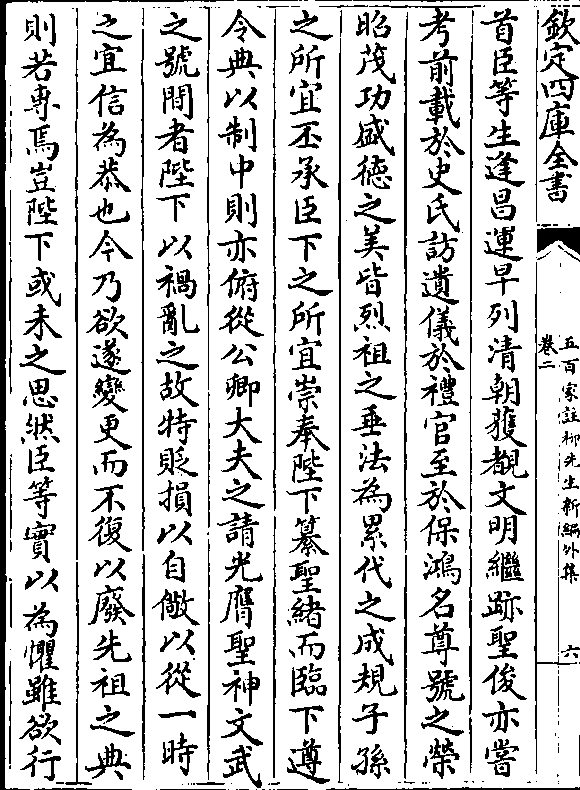 欽定四庫全書
五百家註柳先生新編外集
卷二
六
首臣等生逢昌運早列清朝獲覩文明繼跡聖俊亦嘗
考前載於史氏訪遺儀於禮官至於保鴻名尊號之榮
昭茂功盛德之美皆烈祖之垂法為累代之成規子孫
之所宜丕承臣下之所宜崇奉陛下纂聖緒而臨下遵
令典以制中則亦俯從公卿大夫之請光膺聖神文武
之號間者陛下以禍亂之故特貶損以自儆以從一時
之宜信為恭也今乃欲遂變更而不復以廢先祖之典
則若専焉豈陛下或未之思然臣等實以為懼雖欲行